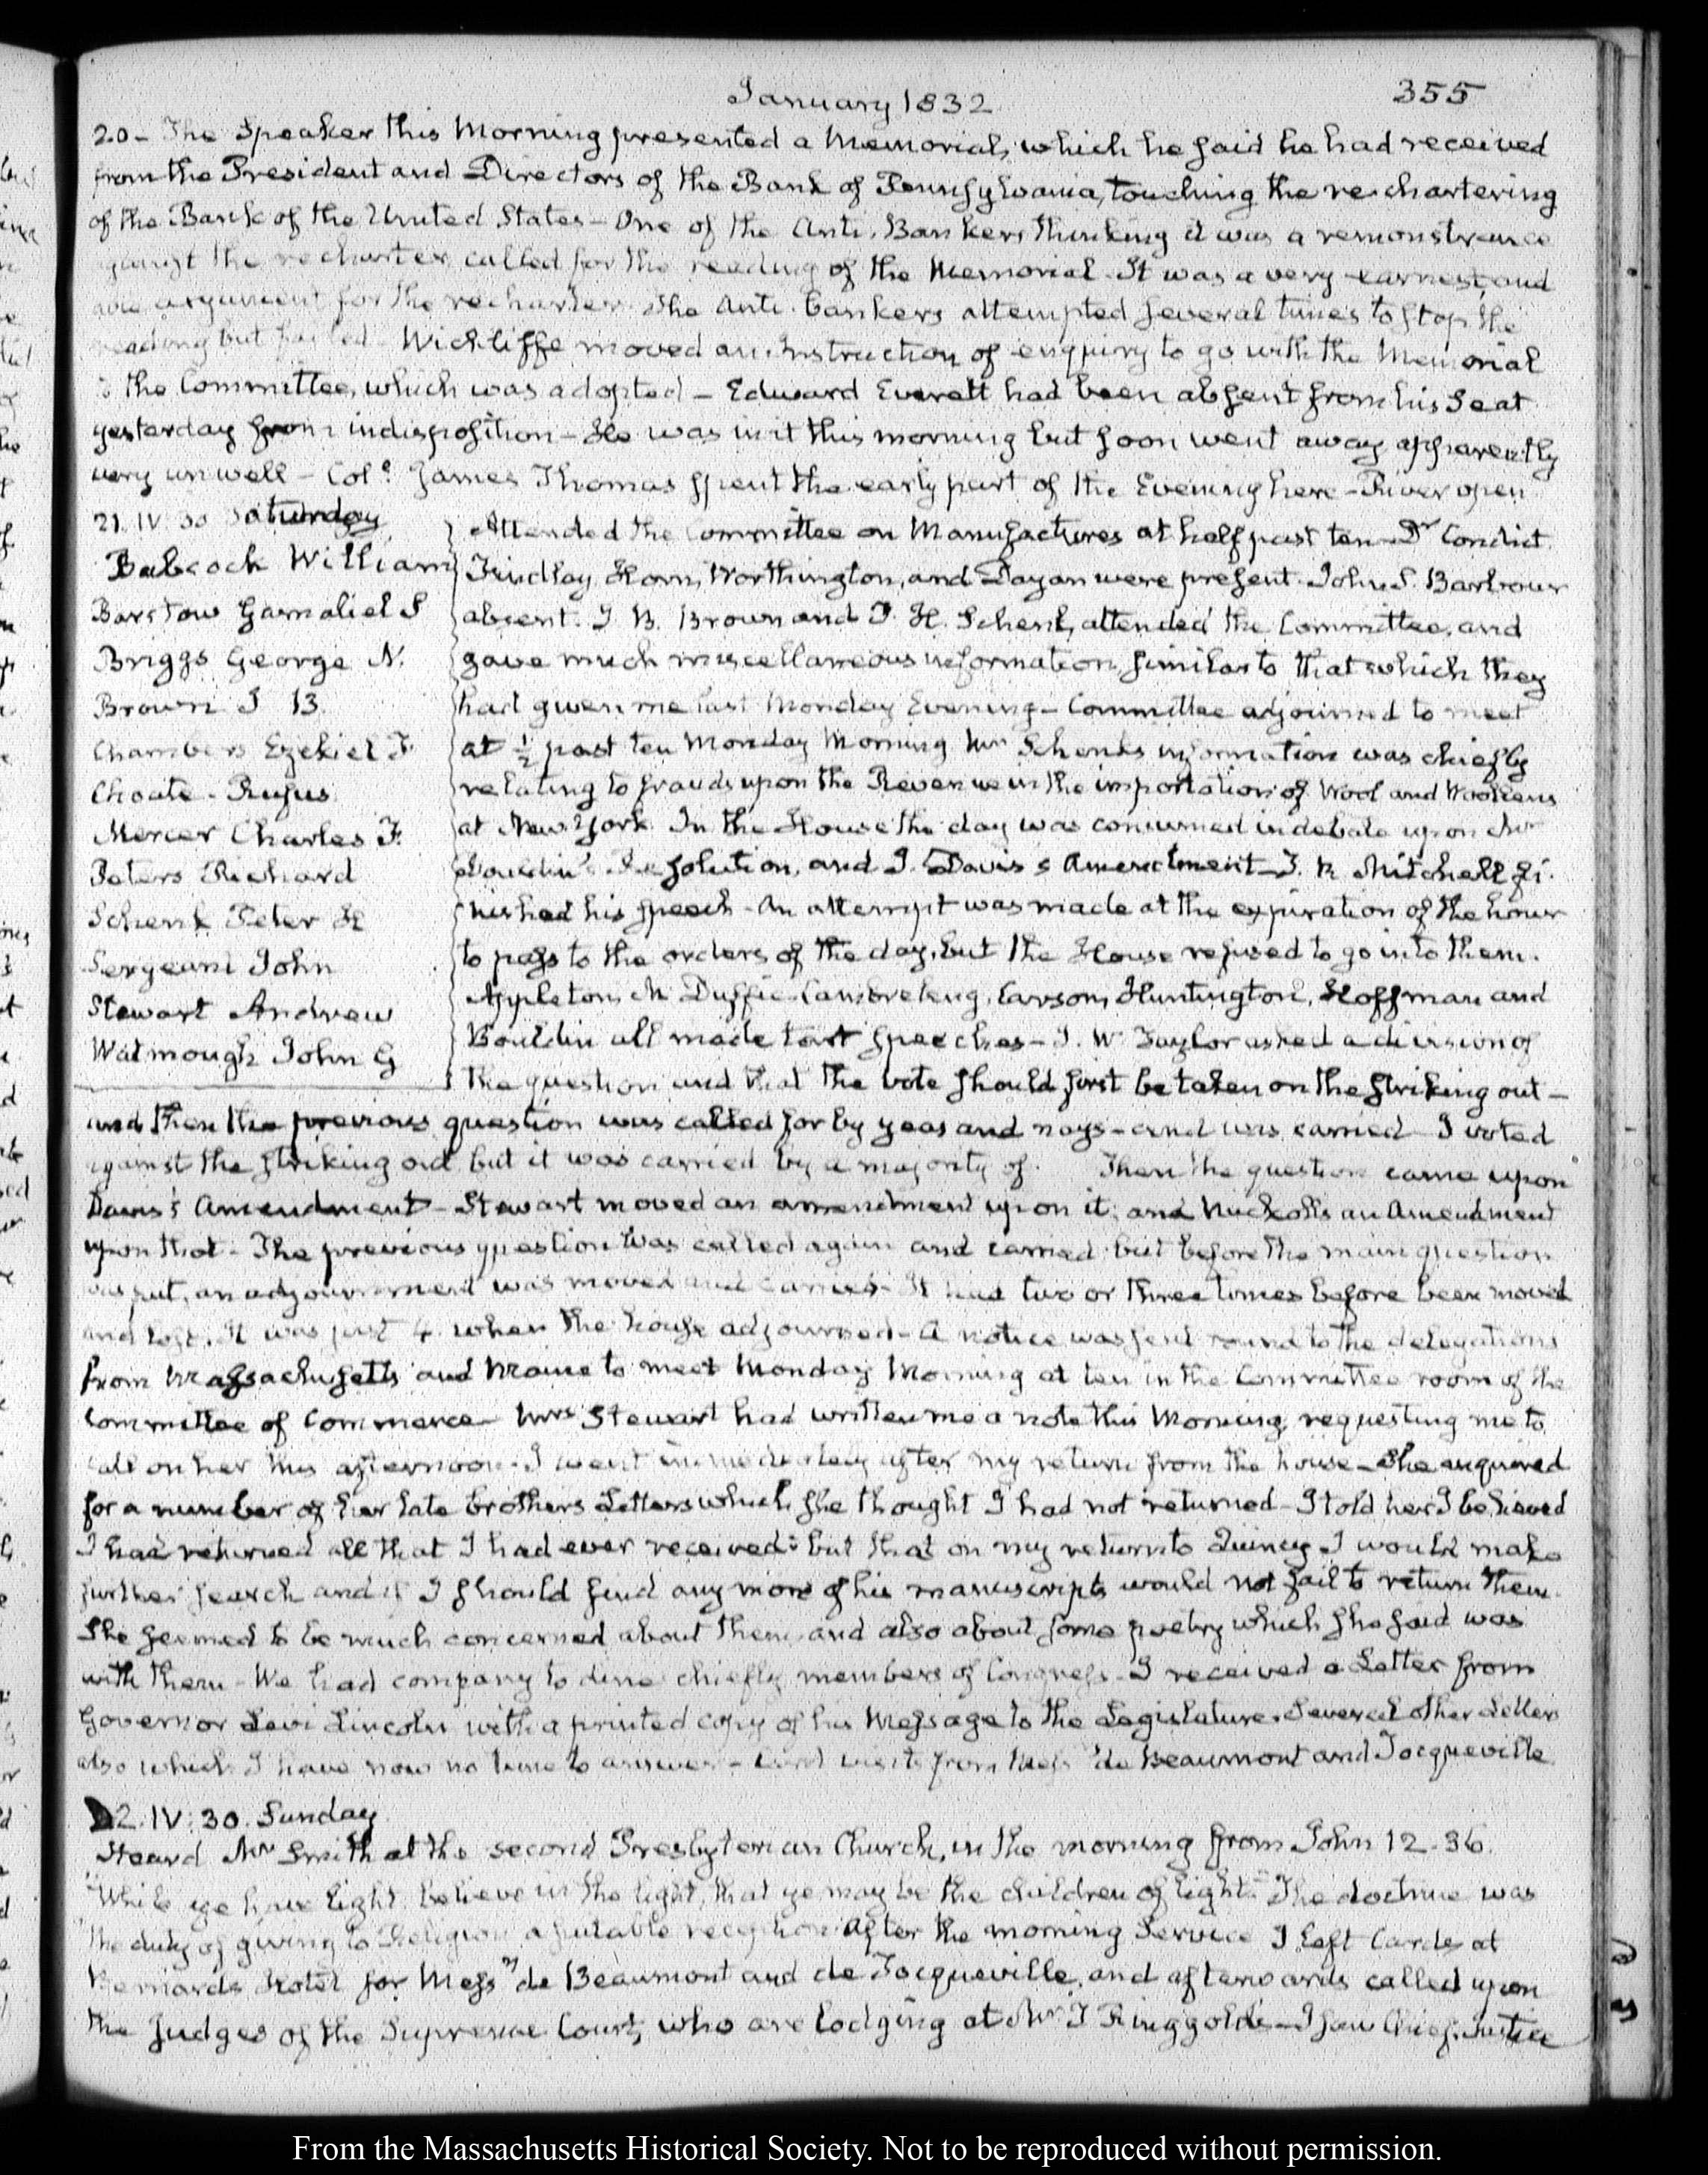 January 1832
355
20 - The Speaker this Morning presented a Memorial, which he said he had received
from the President and Directors of the Bank of Pennsylvania, touching the re-chartering
of the Bank of the United States - One of the Anti-Bankers thinking it was a remonstrance
against the recharter, called for the reading of the Memorial - It was a very earnest, and
able argument for the recharter. The Anti-bankers attempted several times to stop the
reading but failed - Wickliffe moved an Instruction of enquiry to go with the Memorial
to the Committee, which was adopted - Edward Everett had been absent from his Seat
yesterday from indisposition - He was in it this morning but soon went away apparently
very unwell - Coll. James Thomas spent the early part of the Evening here - River open
21. IV. 30 Saturday
Babcock William
Barstow Gamaliel S
Briggs George N.
Brown J B.
Chambers Ezekiel F.
Choate - Rufus
Mercer Charles F.
Peters Richard
Schenk Peter H
Sergeant John
Stewart Andrew
Watmough John G
Attended the Committee on Manufactures at half past ten - Dr Condict
Findlay, Horn, Worthington, and Dayan were present. John S. Barbour
absent. J. B. Brown and P. H. Schenk, attended the Committee, and
gave much miscellaneous information, similar to that which they
had given me last Monday Evening - Committee adjourned to meet
at ½ past ten Monday Morning. Mr Schenk's information was chiefly
relating to frauds upon the Revenue in the importation of Wool and Woollens
at New York. In the House the day was consumed in debate upon Mr
Bouldin's Resolution, and J. Davis's Amendment - T. R. Mitchell fi-
nished his speech - An attempt was made at the expiration of the hour
to pass to the orders of the day, but the House refused to go into them.
Appleton, McDuffie, Cambreleng, Carson, Huntington, Hoffman and
Bouldin all made tart speeches - J. W. Taylor asked a division of
the question and that the vote should first be taken on the striking out -
and then the previous question was called for by yeas and nays - and was carried I voted
against the striking out but it was carried by a majority of. Then the question came upon
Davis's Amendment - Stewart moved an amendment upon it, and Nuckolls an Amendment
upon that - The previous question was called again and carried but before the main question
was put, an adjournment was moved and carried - It had two or three times before been moved
and lost. It was past 4. when the house adjourned - A notice was sent round to the delegations
from Massachusetts and Maine to meet Monday Morning at ten in the Committee room of the
Committee of Commerce - Mrs Stewart had written me a note this Morning, requesting me to
call on her this afternoon - I went immediately after my return from the house - She enquired
for a number of her late brothers Letters which she thought I had not returned - I told her I believed
I had returned all that I had ever received: but that on my return to Quincy I would make
further search and if I should find any more of his manuscripts would not fail to return them.
She seemed to be much concerned about them, and also about some poetry which she said was
with them - We had company to dine chiefly members of Congress - I received a Letter from
Governor Levi Lincoln with a printed copy of his Message to the Legislature. Several other Letters
also which I have now no time to answer - visits from Messrs de Beaumont and Tocqueville
22. IV: 30. Sunday
Heard Mr Smith at the second Presbyterian Church, in the morning from John 12. 36.
"While ye have light, believe in the light, that ye may be the children of light." The doctrine was
the duty of giving to Religion a suitable reception. After the morning Service I left Cards at
Bernards Hotel for Messrs de Beaumont and de Tocqueville, and afterwards called upon
the Judges of the Supreme Court, who are lodging at Mr T Ringgold's - I saw Chief Justice
From the Massachusetts Historical Society. Not to be reproduced without permission.